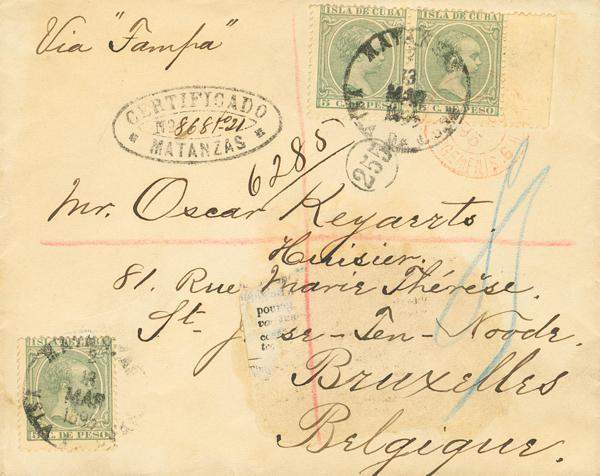 Via "Tampa"
ISLA DE CUBA
ISLA DE CUBA
5 C. DE PESO
5 C. DE PESO
MATANZAS
13
MAR
CERTIFICADO
No 868
MATANZAS
6285
255
Mr. Oscar Keyarrts.
Huisier.
81. Rue Marie Thérèse.
St. Josse-Ten-Noode.
Bruxelles
Belgique.
ISLA DE CUBA
13
MAR
5 C. DE PESO